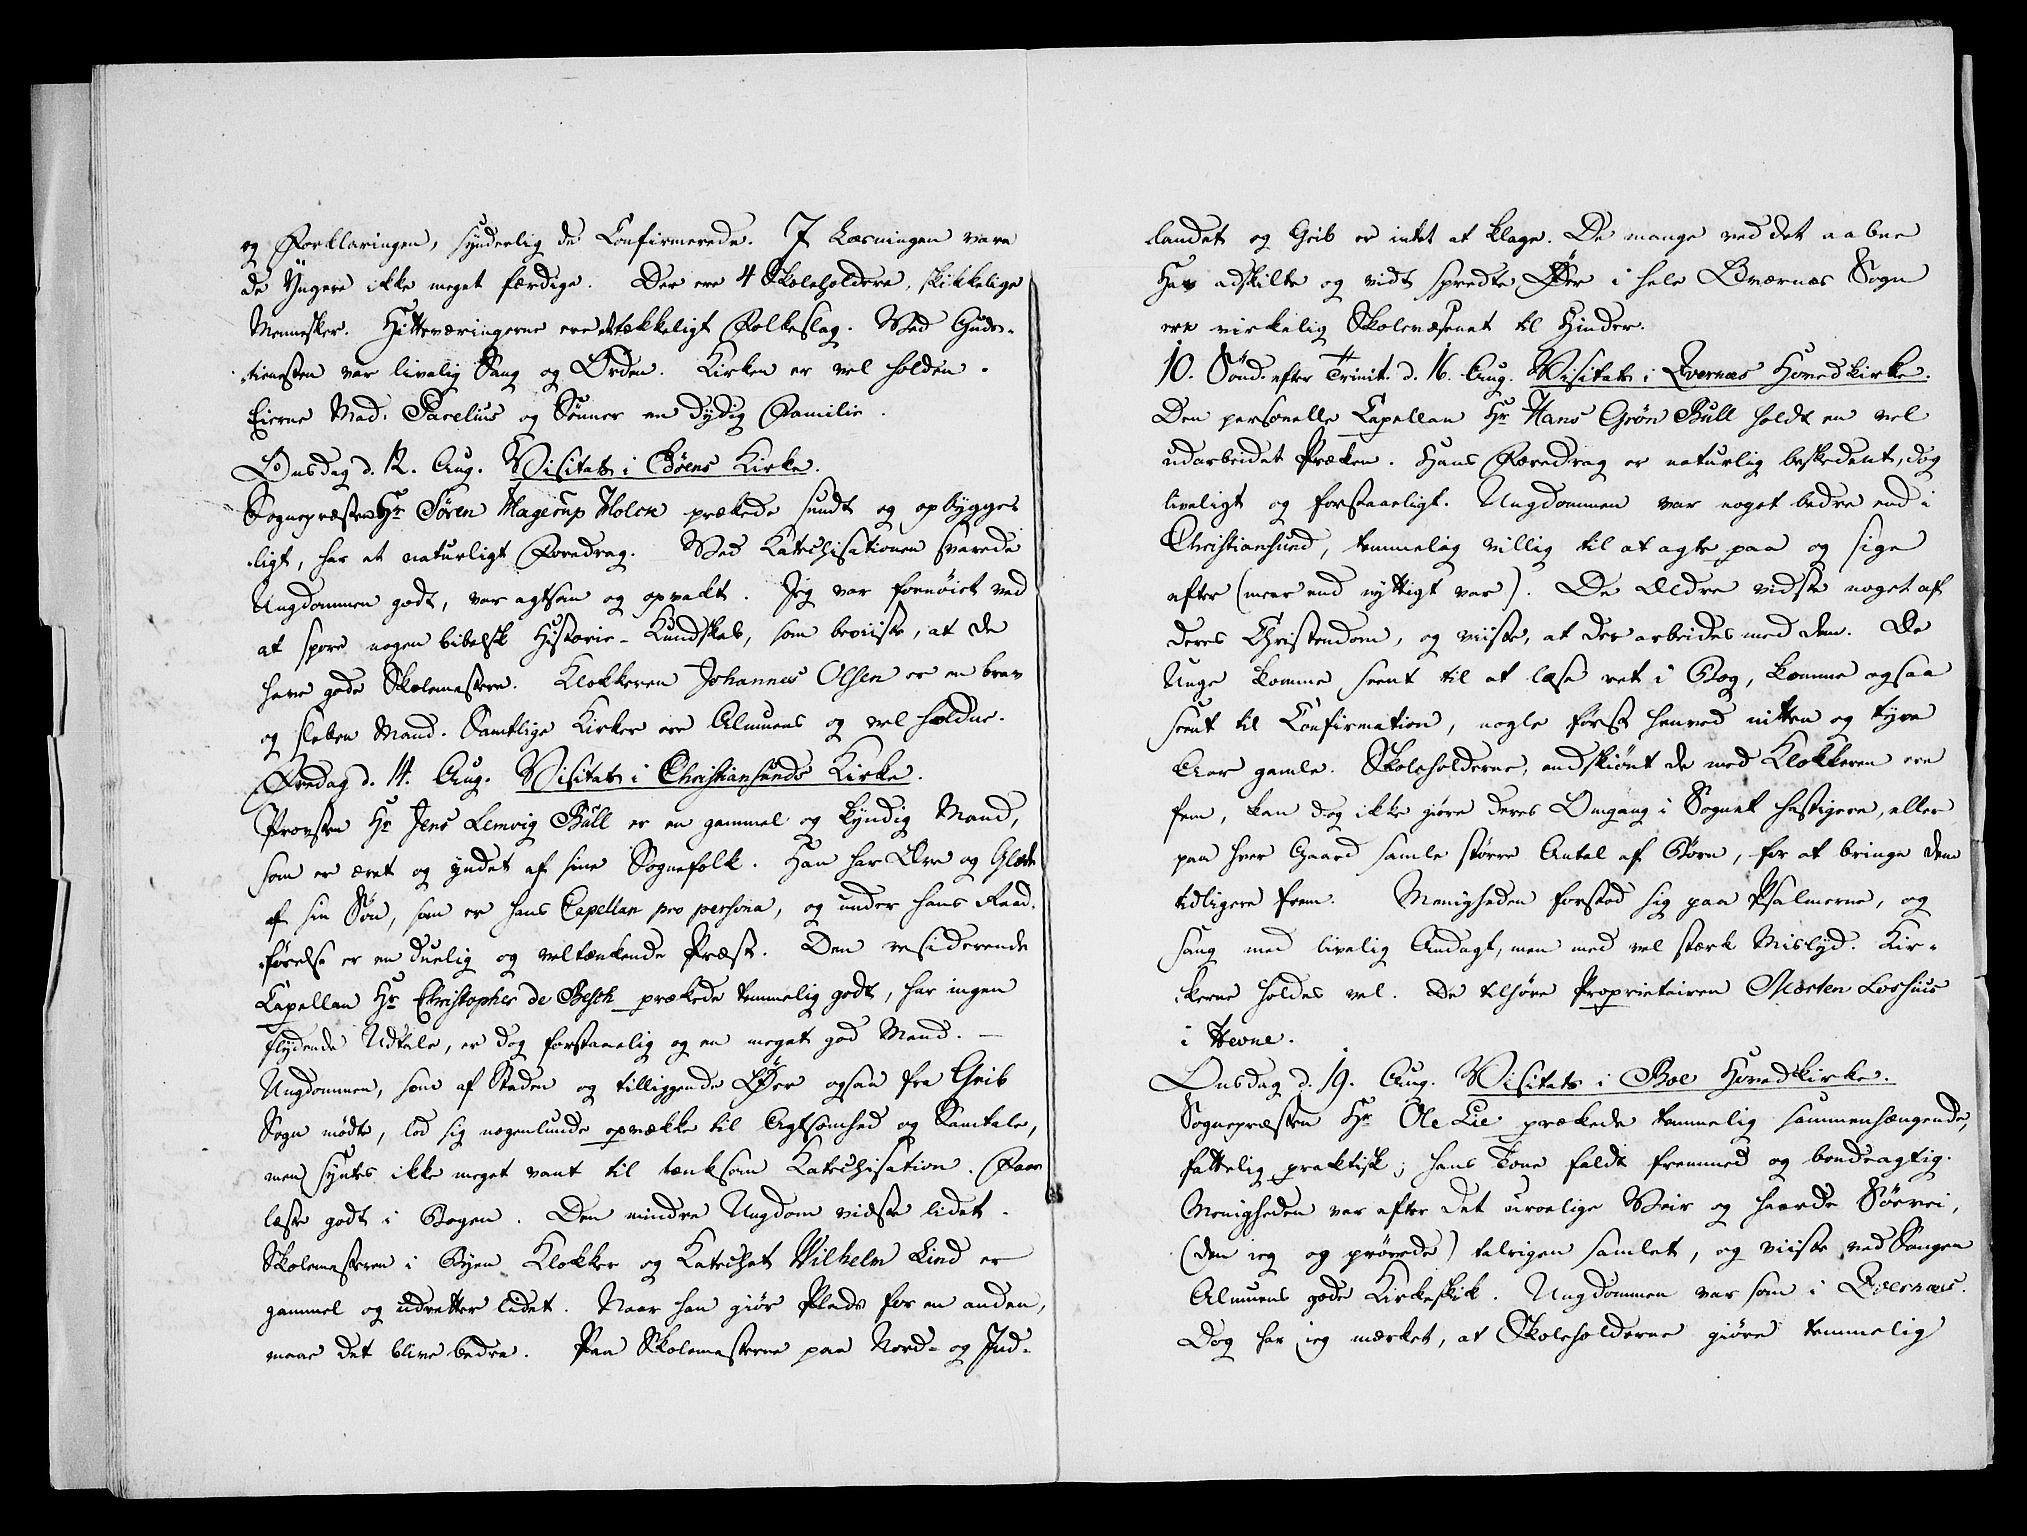 og Forklaringen, synderlig de Confirmerede. I Læsningen vare
de Yngere ikke meget færdige. Der ere 4 Skoleholdere, skikkelige
Mennesker. Hitteværingerne ere et tækkeligt Folkeslag. Ved Guds-
tienesten var livelig Sang og Orden. Kirken er vel holden.
Eierne Mad. Parelius og Sønner en dydig Familie.
Onsdag d. 12. Aug. Visitats i Edøens Kirke.
Sognepræsten Hr Søren Hagerup Holck prækede sundt og opbygge-
ligt, har et naturligt Foredrag. Ved Katechisationen svarede
Ungdommen godt, var agtsom og opvakt. Jeg var fornøiet ved
at spore nogen bibelsk Historie-Kundskab, som beviiste, at de
have gode Skolemestere. Klokkeren Johannes Olsen er en brav
og sleben Mand. Samtlige Kirker ere Almuens og vel holdne.
Fredag d. 14. Aug. Visitats i Christiansunds Kirke.
Provsten Hr Jens Lemvig Bull er en gammel og kyndig Mand,
som er æret og yndet af sine Sognefolk. Han har Ære og Glæde
af sin Søn, som er hans Capellan pro persona, og under hans Raad-
førelse er en duelig og veltænkende Præst. Den residerende
Capellan Hr Christopher de Besch prækede temmelig godt, har ingen
flydende Udtale, er dog forstaaelig og en meget god Mand. —
Ungdommen, som af Staden og tilliggende Øer ogsaa fra Grib
Sogn mødte, lod sig nogenlunde opvække til Agtsomhed og Samtale,
men syntes ikke meget vant til tænksom Katechisation. Faae
læste godt i Bogen. Den mindre Ungdom vidste lidet.
Skolemesteren i Byen Klokker og Katechet Wilhelm Lind er
gammel og udretter lidet. Naar han giør Plads for en anden,
maae det blive bedre. Paa Skolemesterne paa Nord- og Ind-
landet og Grib er intet at klage. De mange ved det aabne
Hav adskilte og vidt spredte Øer i hele Qværnes Sogn
ere virkelig Skolevæsenet til Hinder.
10. Sønd. efter Trinit. d. 16. Aug. Visitats i Qvernæs Hovedkirke.
Den personelle Capellan Hr Hans Grøn Bull holdt en vel
udarbeidet Præken. Hans Foredrag er naturlig beskedent, dog
liveligt og forstaaeligt. Ungdommen var noget bedre end i
Christiansund, temmelig villig til at agte paa og sige
efter (meer end nyttigt var). De Ældre vidste noget af
deres Christendom, og viiste, at der arbeides med dem. De
Unge komme seent til at læse ret i Bog, komme ogsaa
seent til Confirmation, nogle først henved nitten og tyve
Aar gamle. Skoleholderne, endskiønt de med Klokkeren ere
fem, kan dog ikke giøre deres Omgang i Sognet hastigere, eller
paa hver Gaard samle større Antal af Børn, for at bringe dem
tidligere frem. Menigheden forstod sig paa Psalmerne, og
sang med livelig Andagt, men med vel stærk Mislyd. Kir-
kerne holdes vel. De tilhøre Proprietairen Morten Loshuus
i Hevne.
Onsdag d. 19. Aug. Visitats i Boe Hovedkirke.
Sognepræsten Hr Ole Lie prækede temmelig sammenhængende,
fattelig praktisk; hans Tone faldt fremmed og bondeagtig.
Menigheden var efter det urolige Veir og haarde Søevei,
(den jeg og prøvede) talrigen samlet, og viiste ved Sangen
Almuens gode Kirkeskik. Ungdommen var som i Qvernæs.
Dog har jeg mærket, at Skoleholderne giøre temmelig